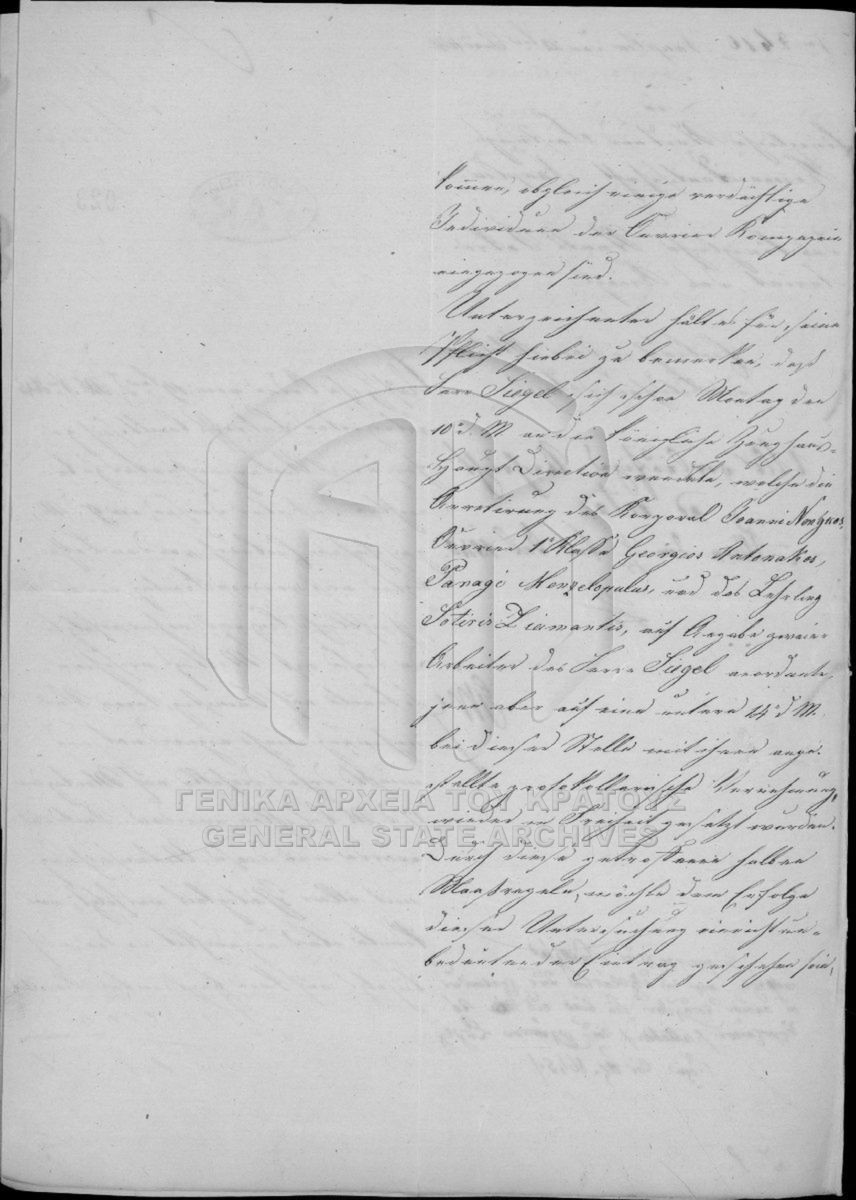 kommen, obgleich einige verdächtige
Individuen der Ouvrier Kompagnie
eingezogen sind.
Unterzeichneter hält es für seine
Pflicht hiebei zu bemerken, daß
Herr Siegel sich schon Montag den
10t d. M. an die königliche Zeughaus-
Haupt Direction wendete, welche die
Arretirung des Korporal Joanni
Ouvrier 1r Klasse Georgios Antonakos,
Panagi Monzelopulos, und des Lehrling
Sotiris Diamantis, auf Angabe zweier
Arbeiter des Herrn Siegel anordnete,
jene aber auf eine unterm 14t d M.
bei dieser Stelle mit ihnen ange-
stellte protokollarische Vernehmung,
wieder in Freiheit gesetzt wurden.
Durch diese getroffenen halben
Maaßregeln, möchte dem Erfolge
dieser Untersuchung ein nicht un-
bedeutender Eintrag geschehen sein,
ΓΕΝΙΚΑ ΑΡΧΕΙΑ ΤΟΥ ΚΡΑΤΟΥΣ
GENERAL STATE ARCHIVES